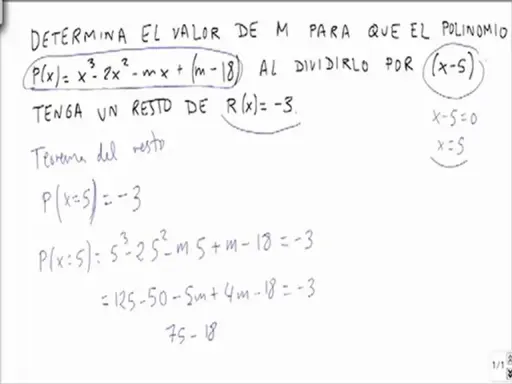 DETERMINA EL VALOR DE M PARA QUE EL POLINOMIO
P(x) = x³ - 2x² - mx + (m - 18) AL DIVIDIRLO POR (x-5)
TENGA UN RESTO DE R(x) = -3.
x-5=0
x=5
Teorema del resto
P(x=5) = -3
P(x=5) = 5³ - 2 5² - m 5 + m - 18 = -3
= 125 - 50 - 5m + 4m - 18 = -3
75 - 18
1/1